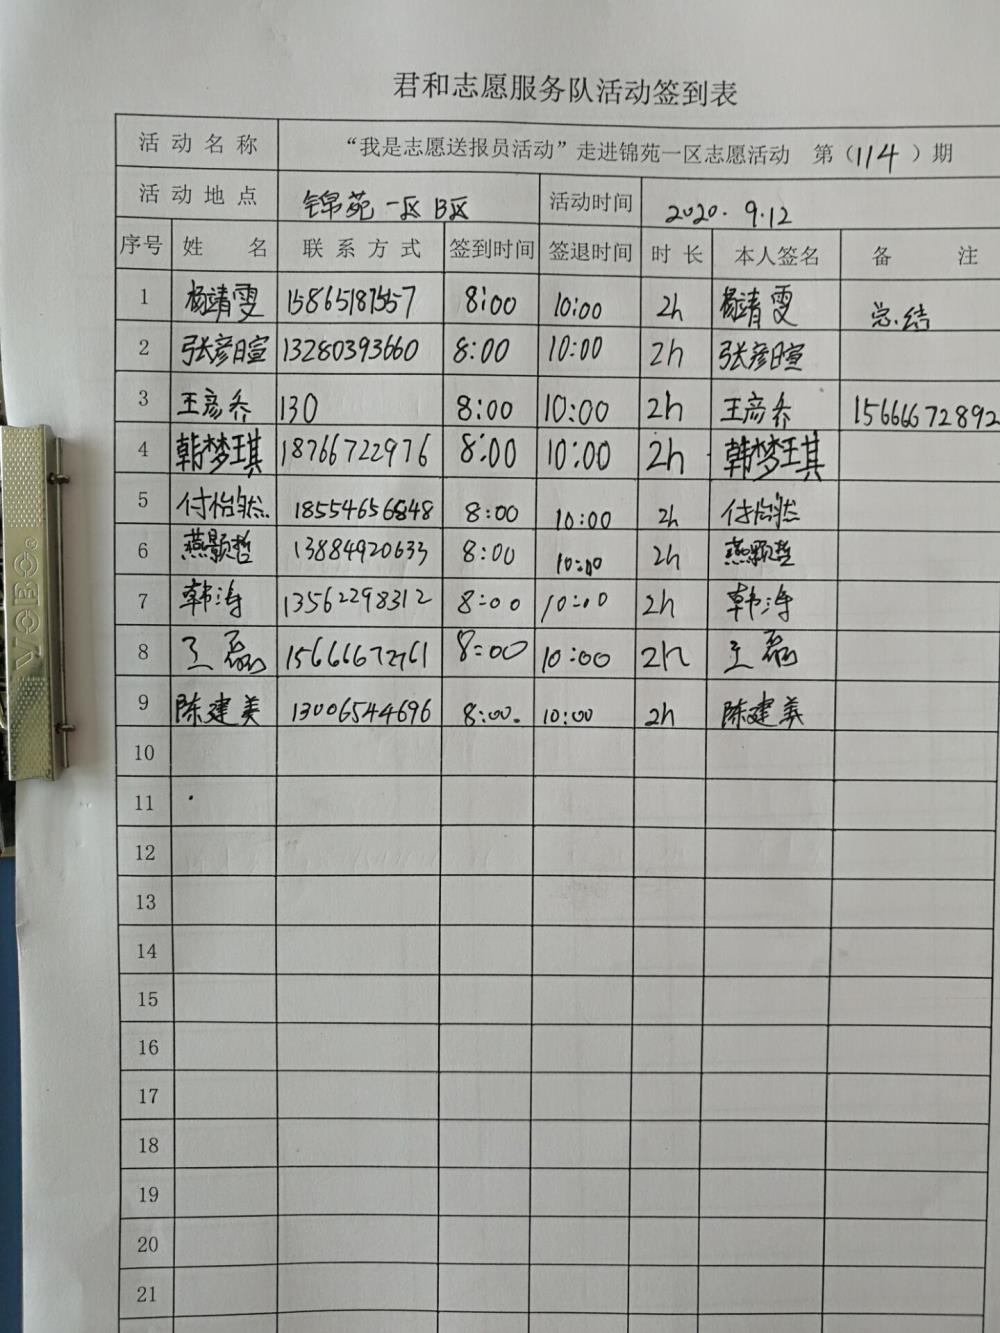 君和志愿服务队活动签到表
活动名称 “我是志愿送报员活动”走进锦苑一区志愿活动 第（114）期
活动地点 锦苑一区B区 活动时间 2020.9.12
序号 姓名 联系方式 签到时间 签退时间 时长 本人签名 备注
1 杨靖雯 15865187557 8:00 10:00 2h 杨靖雯 总结
2 张彦暄 13280393660 8:00 10:00 2h 张彦暄
3 王彦乔 130 8:00 10:00 2h 王彦乔 15666672892
4 韩梦琪 18766722976 8:00 10:00 2h 韩梦琪
5 付怡然 18554656848 8:00 10:00 2h 付怡然
6 燕颢哲 13884920633 8:00 10:00 2h 燕颢哲
7 韩涛 13562298312 8:00 10:00 2h 韩涛
8 王磊 15666672761 8:00 10:00 2h 王磊
9 陈建美 13006544696 8:00. 10:00 2h 陈建美
10
11
12
13
14
15
16
17
18
19
20
21
VOBO